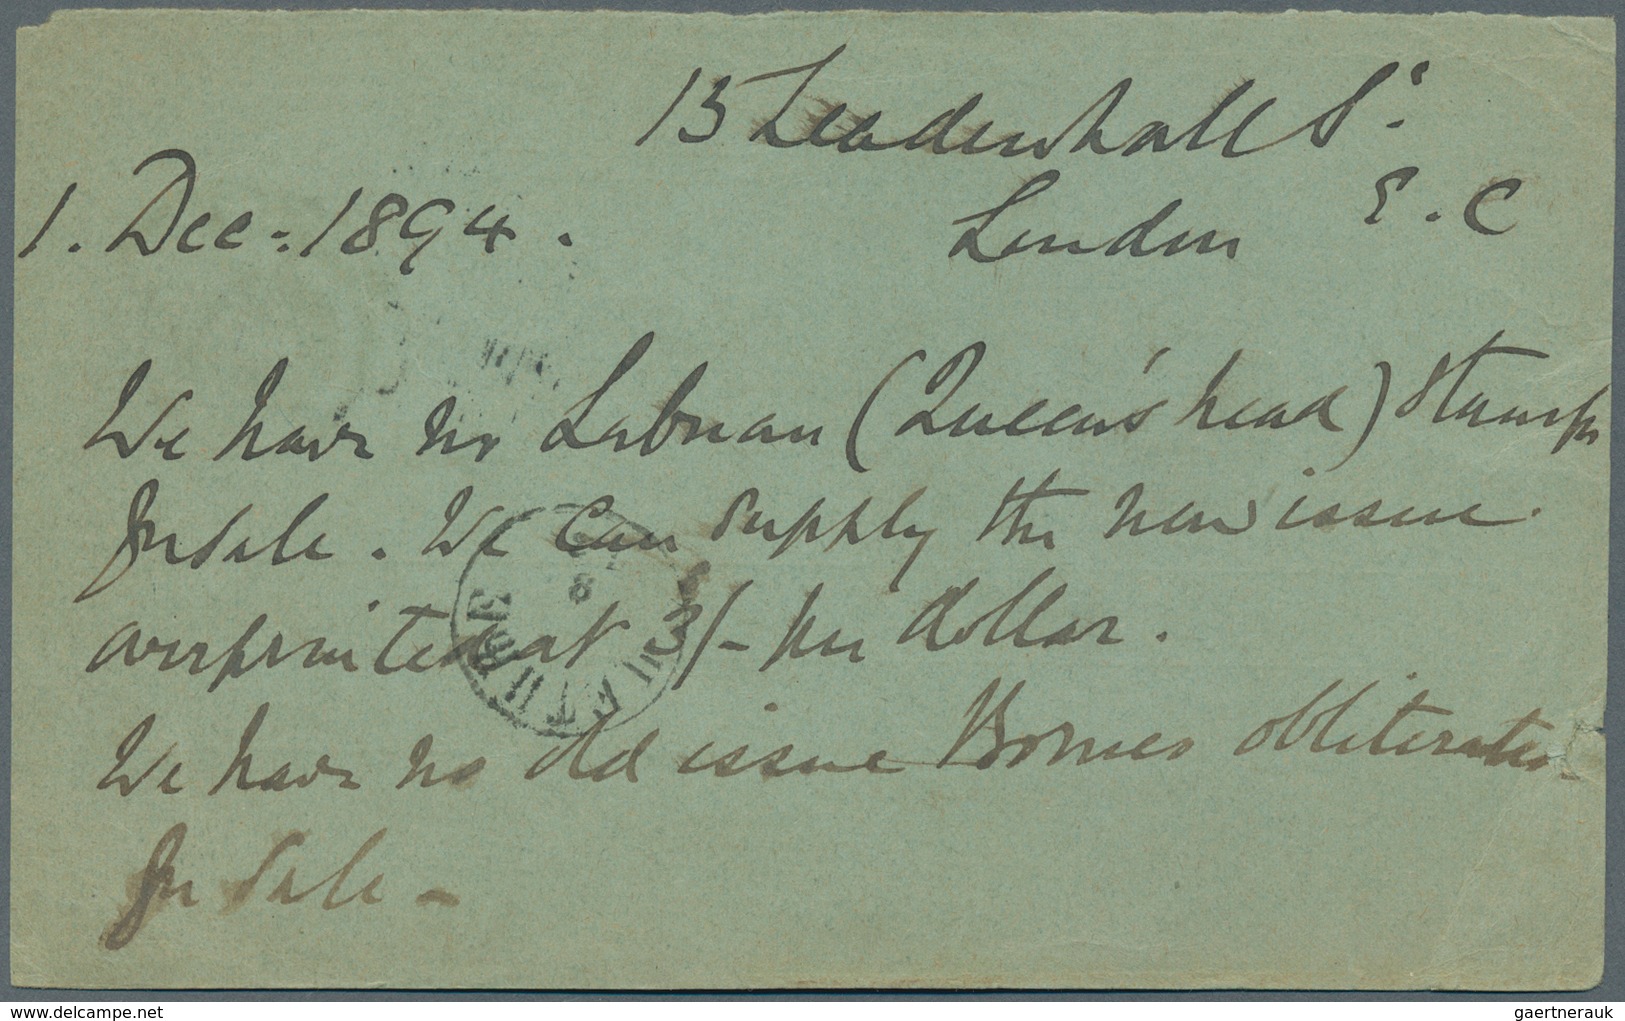 15 Leadenhall St.
London E.C
1. Dec: 1894.
We have no Labuan (Queen's head) stamps
for sale. We can supply the new issue
overprinted at 3/- per dollar.
We have no old issue Borneo obliterated
for sale -
delcampe.net
gaertnerauk